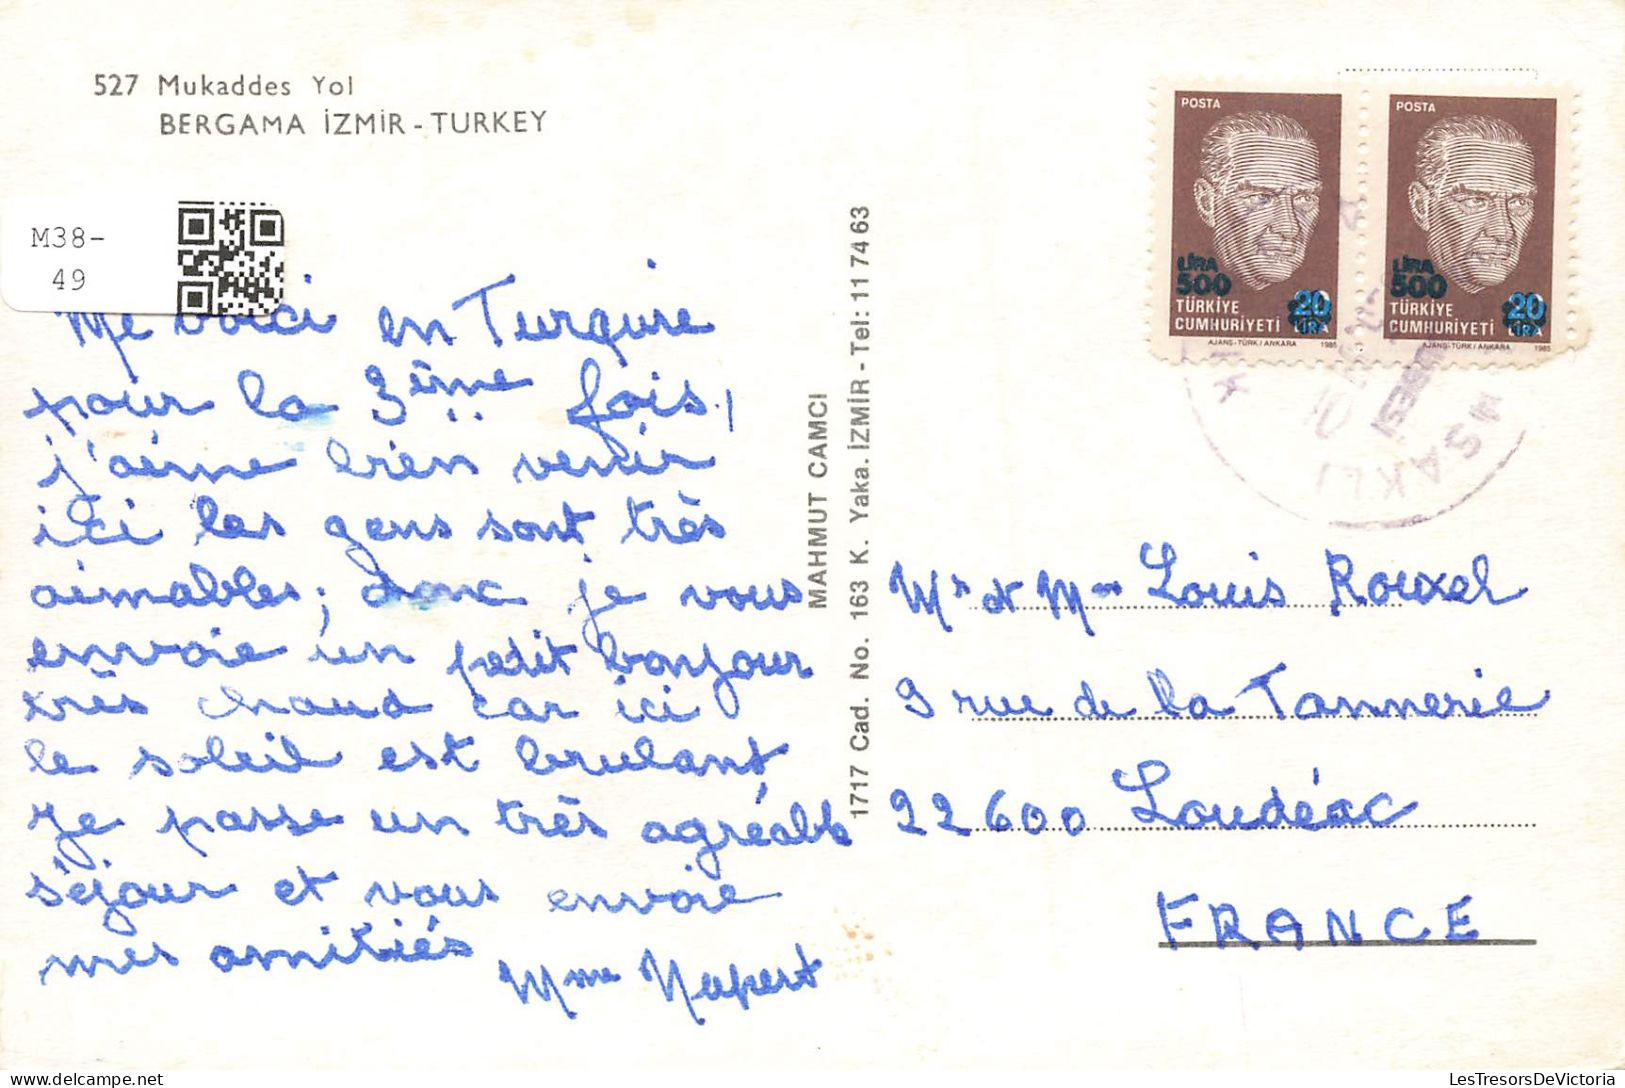 527 Mukaddes Yol
BERGAMA İZMİR - TURKEY
M38-
49
Me voici en Turquie
pour la 3ème fois,
j'aime bien venir
ici les gens sont très
aimables; donc je vous
envoie un petit bonjour
très chaud car ici
le soleil est brulant
Je passe un très agréable
séjour et vous envoie
mes amitiés
Mme
MAHMUT CAMCI
1717 Cad. No. 163 K. Yaka. İZMİR - Tel: 11 74 63
POSTA
LİRA
500
20
LİRA
TÜRKİYE
CUMHURİYETİ
AJANS-TÜRK / ANKARA 1985
POSTA
LİRA
500
20
LİRA
TÜRKİYE
CUMHURİYETİ
AJANS-TÜRK / ANKARA 1985
Mr et Mme Louis Rouxel
9 rue de la Tannerie
22600 Loudéac
FRANCE
LesTresorsDeVictoria